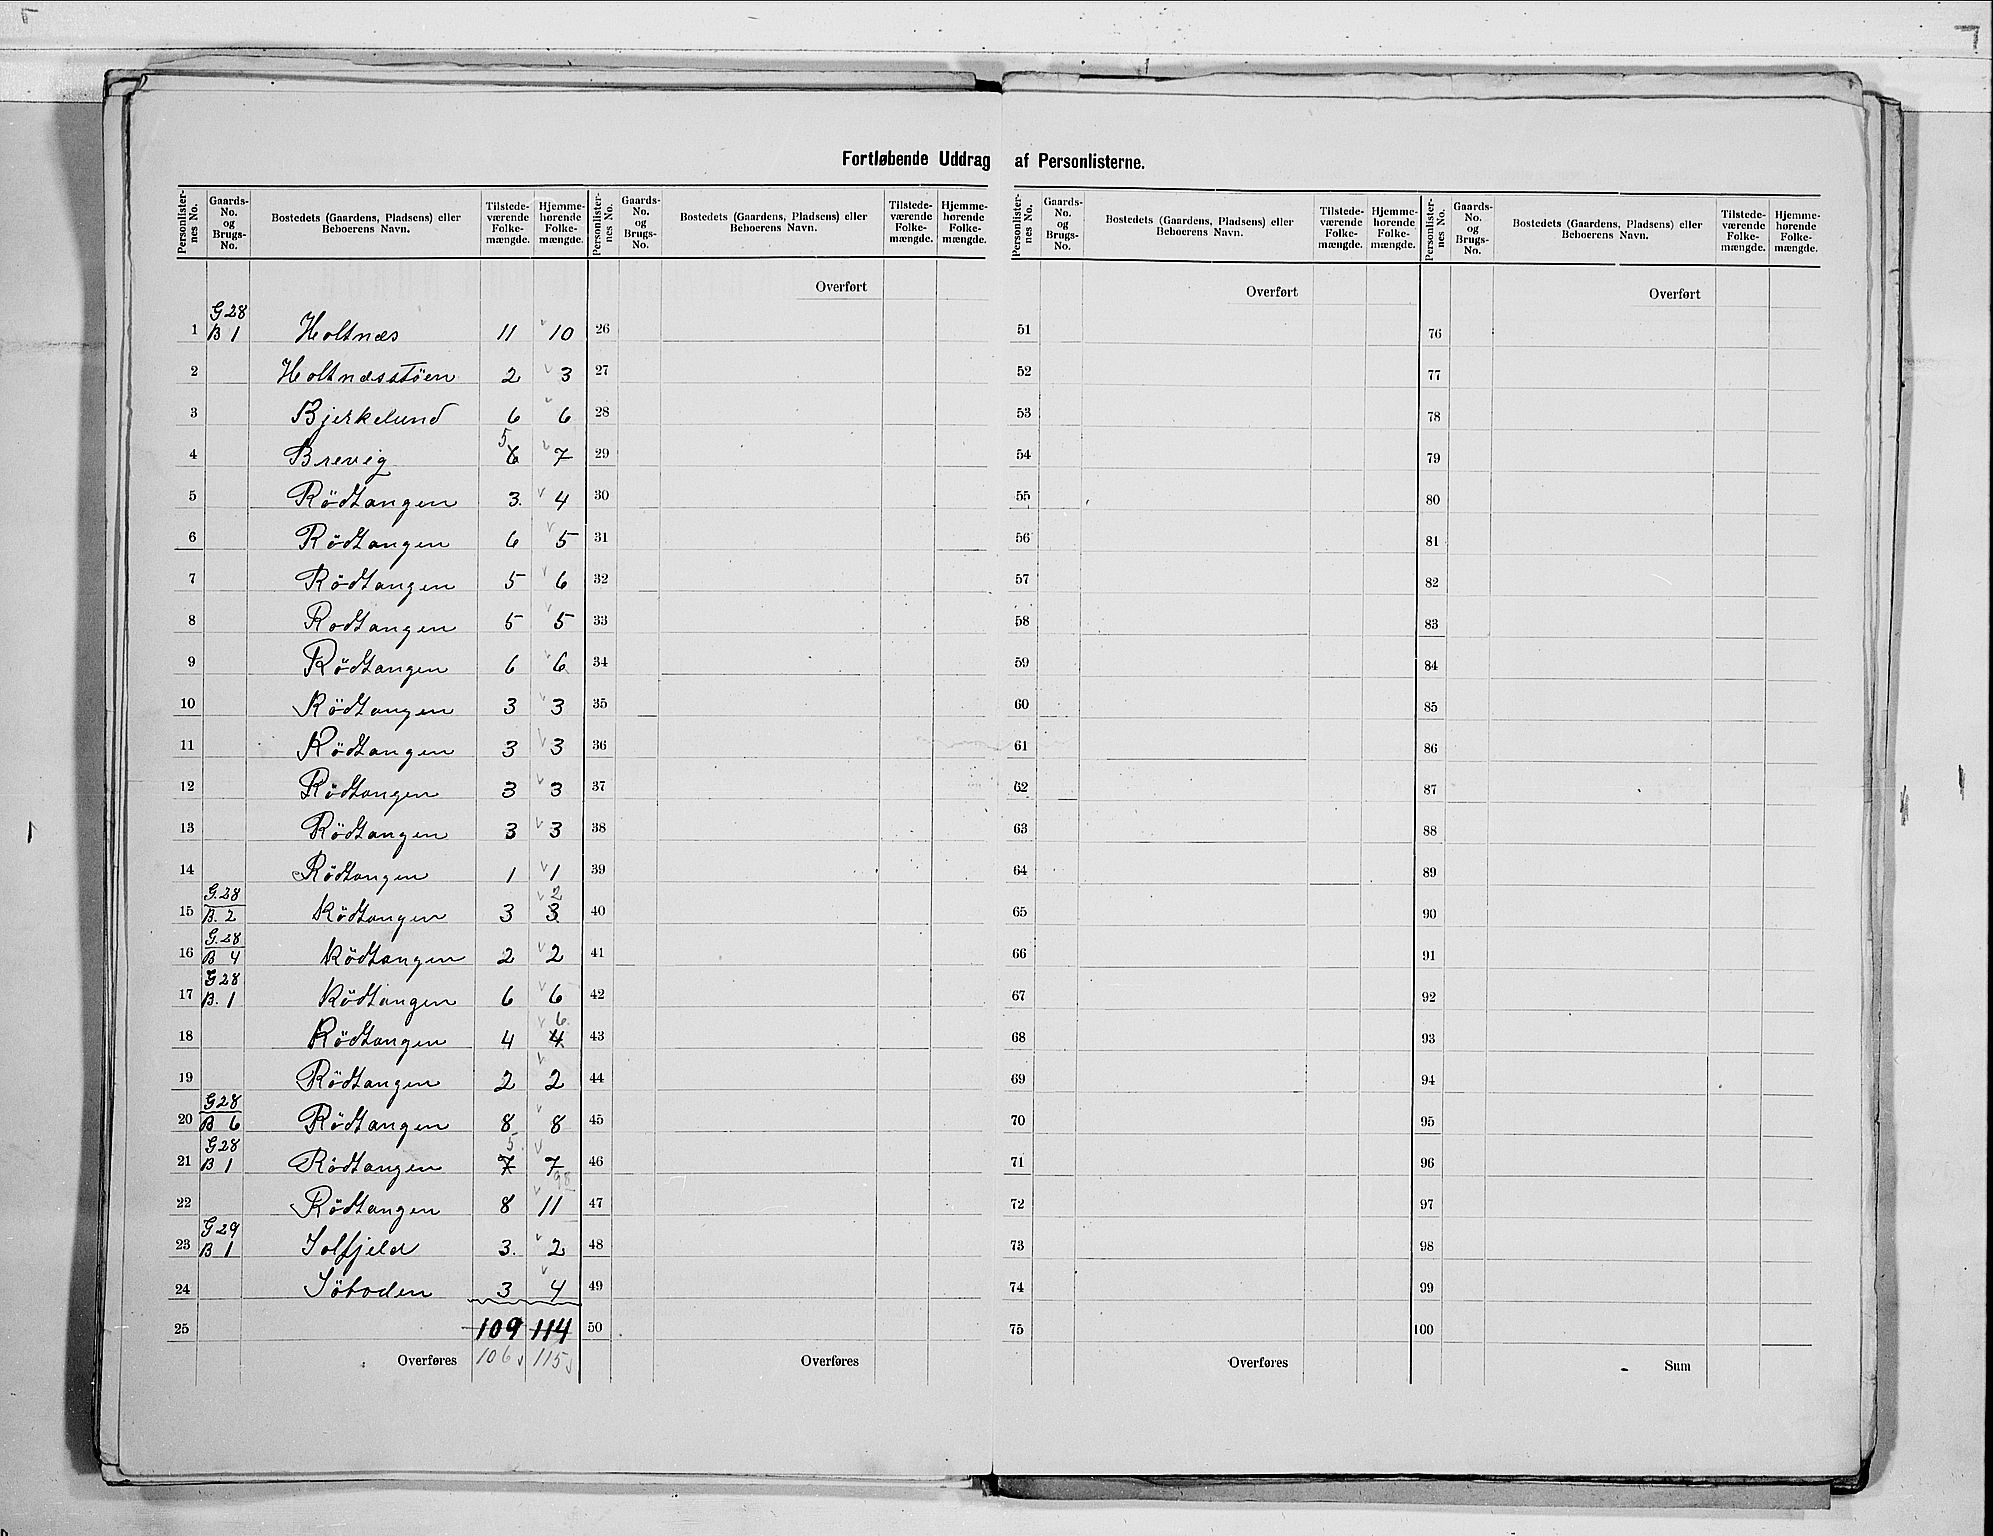 Fortløbende Uddrag af Personlisterne.
Personlister-nes No. | Gaards-No. og Brugs-No. | Bostedets (Gaardens, Pladsens) eller Beboerens Navn. | Tilstede-værende Folke-mængde. | Hjemme-hørende Folke-mængde. | Personlister-nes No. | Gaards-No. og Brugs-No. | Bostedets (Gaardens, Pladsens) eller Beboerens Navn. | Tilstede-værende Folke-mængde. | Hjemme-hørende Folke-mængde. | Personlister-nes No. | Gaards-No. og Brugs-No. | Bostedets (Gaardens, Pladsens) eller Beboerens Navn. | Tilstede-værende Folke-mængde. | Hjemme-hørende Folke-mængde. | Personlister-nes No. | Gaards-No. og Brugs-No. | Bostedets (Gaardens, Pladsens) eller Beboerens Navn. | Tilstede-værende Folke-mængde. | Hjemme-hørende Folke-mængde.
Overført Overført Overført
G 28
1 B 1 Holtnæs 11 10 26 51 76
2 Holtnæsstöen 2 3 27 52 77
3 Bjerkelund 6 6 28 53 78
5
4 Brevig 6 7 29 54 79
5 Rödtangen 3. 4 30 55 80
6 Rödtangen 6 5 31 56 81
7 Rödtangen 5 6 32 57 82
8 Rodtangen 5 5 33 58 83
9 Rödtangen 6 6 34 59 84
10 Rödtangen 3 3 35 60 85
11 Rödtangen 3 3 36 61 86
12 Rödtangen 3 3 37 62 87
13 Rödtangen 3 3 38 63 88
14 Rödtangen 1 1 39 64 89
G. 28 2
15 B. 2 Rödtangen 3 3 40 65 90
G. 28
16 B 4 Rödtangen 2 2 41 66 91
G 28
17 B. 1 Rödtangen 6 6 42 67 92
6
18 Rödtangen 4 4 43 68 93
19 Rödtangen 2 2 44 69 94
G 28
20 B 6 Rödtangen 8 8 45 70 95
G 28 5
21 B 1 Rödtangen 7 7 46 71 96
98
22 Rödtangen 8 11 47 72 97
G 29
23 B 1 Solfjeld 3. 2 48 73 98
24 Söboden 3 4 49 74 99
25 109 114 50 75 100
Overføres 106 115 Overføres Overføres Sum